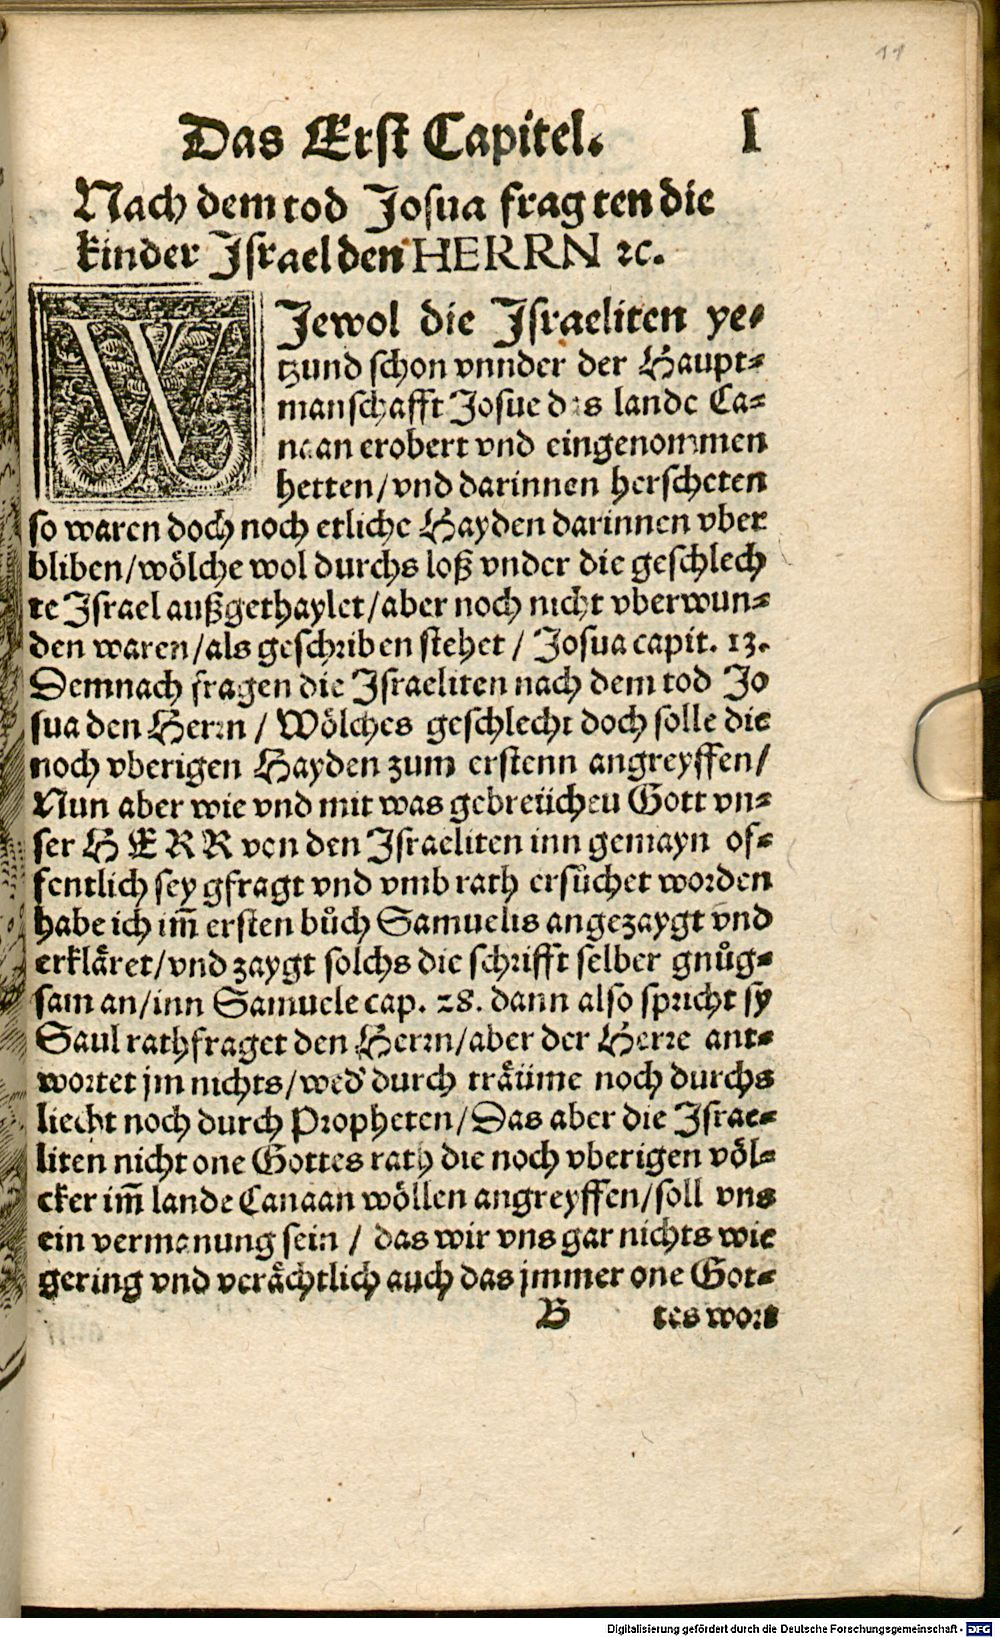 11
Das Erst Capitel. I
Nach dem tod Josua fragten die
kinder Israel den HERRN ꝛc.
WJewol die Jsraeliten ye-
tzund schon vnnder der Haupt-
manschafft Josue das lande Ca-
naan erobert vnd eingenommen
hetten/vnd darinnen herscheten
so waren doch noch etliche Hayden darinnen vber
bliben/wölche wol durchs loß vnder die geschlech
te Jsrael außgethaylet/aber noch nicht vberwun-
den waren/als geschriben stehet / Josua capit. 13.
Demnach fragen die Jsraeliten nach dem tod Jo
sua den Herrn / Wölches geschlecht doch solle die
noch vberigen Hayden zum erstenn angreyffen/
Nun aber wie vnd mit was gebreüchen Gott vn-
ser HERR von den Jsraeliten inn gemayn of-
fentlich sey gfragt vnd vmb rath ersůchet worden
habe ich im̄ ersten bůch Samuelis angezaygt vnd
erkläret/vnd zaygt solchs die schrifft selber gnůg-
sam an/inn Samuele cap. 28. dann also spricht sy
Saul rathfraget den Herrn/aber der Herre ant-
wortet jm nichts/wed' durch träume noch durchs
liecht noch durch Propheten/Das aber die Jsrae-
liten nicht one Gottes rath die noch vberigen völ-
cker im̄ lande Canaan wöllen angreyffen/soll vns
ein vermanung sein / das wir vns gar nichts wie
gering vnd verächtlich auch das jmmer one Got-
B tes wort
Digitalisierung gefördert durch die Deutsche Forschungsgemeinschaft - DFG